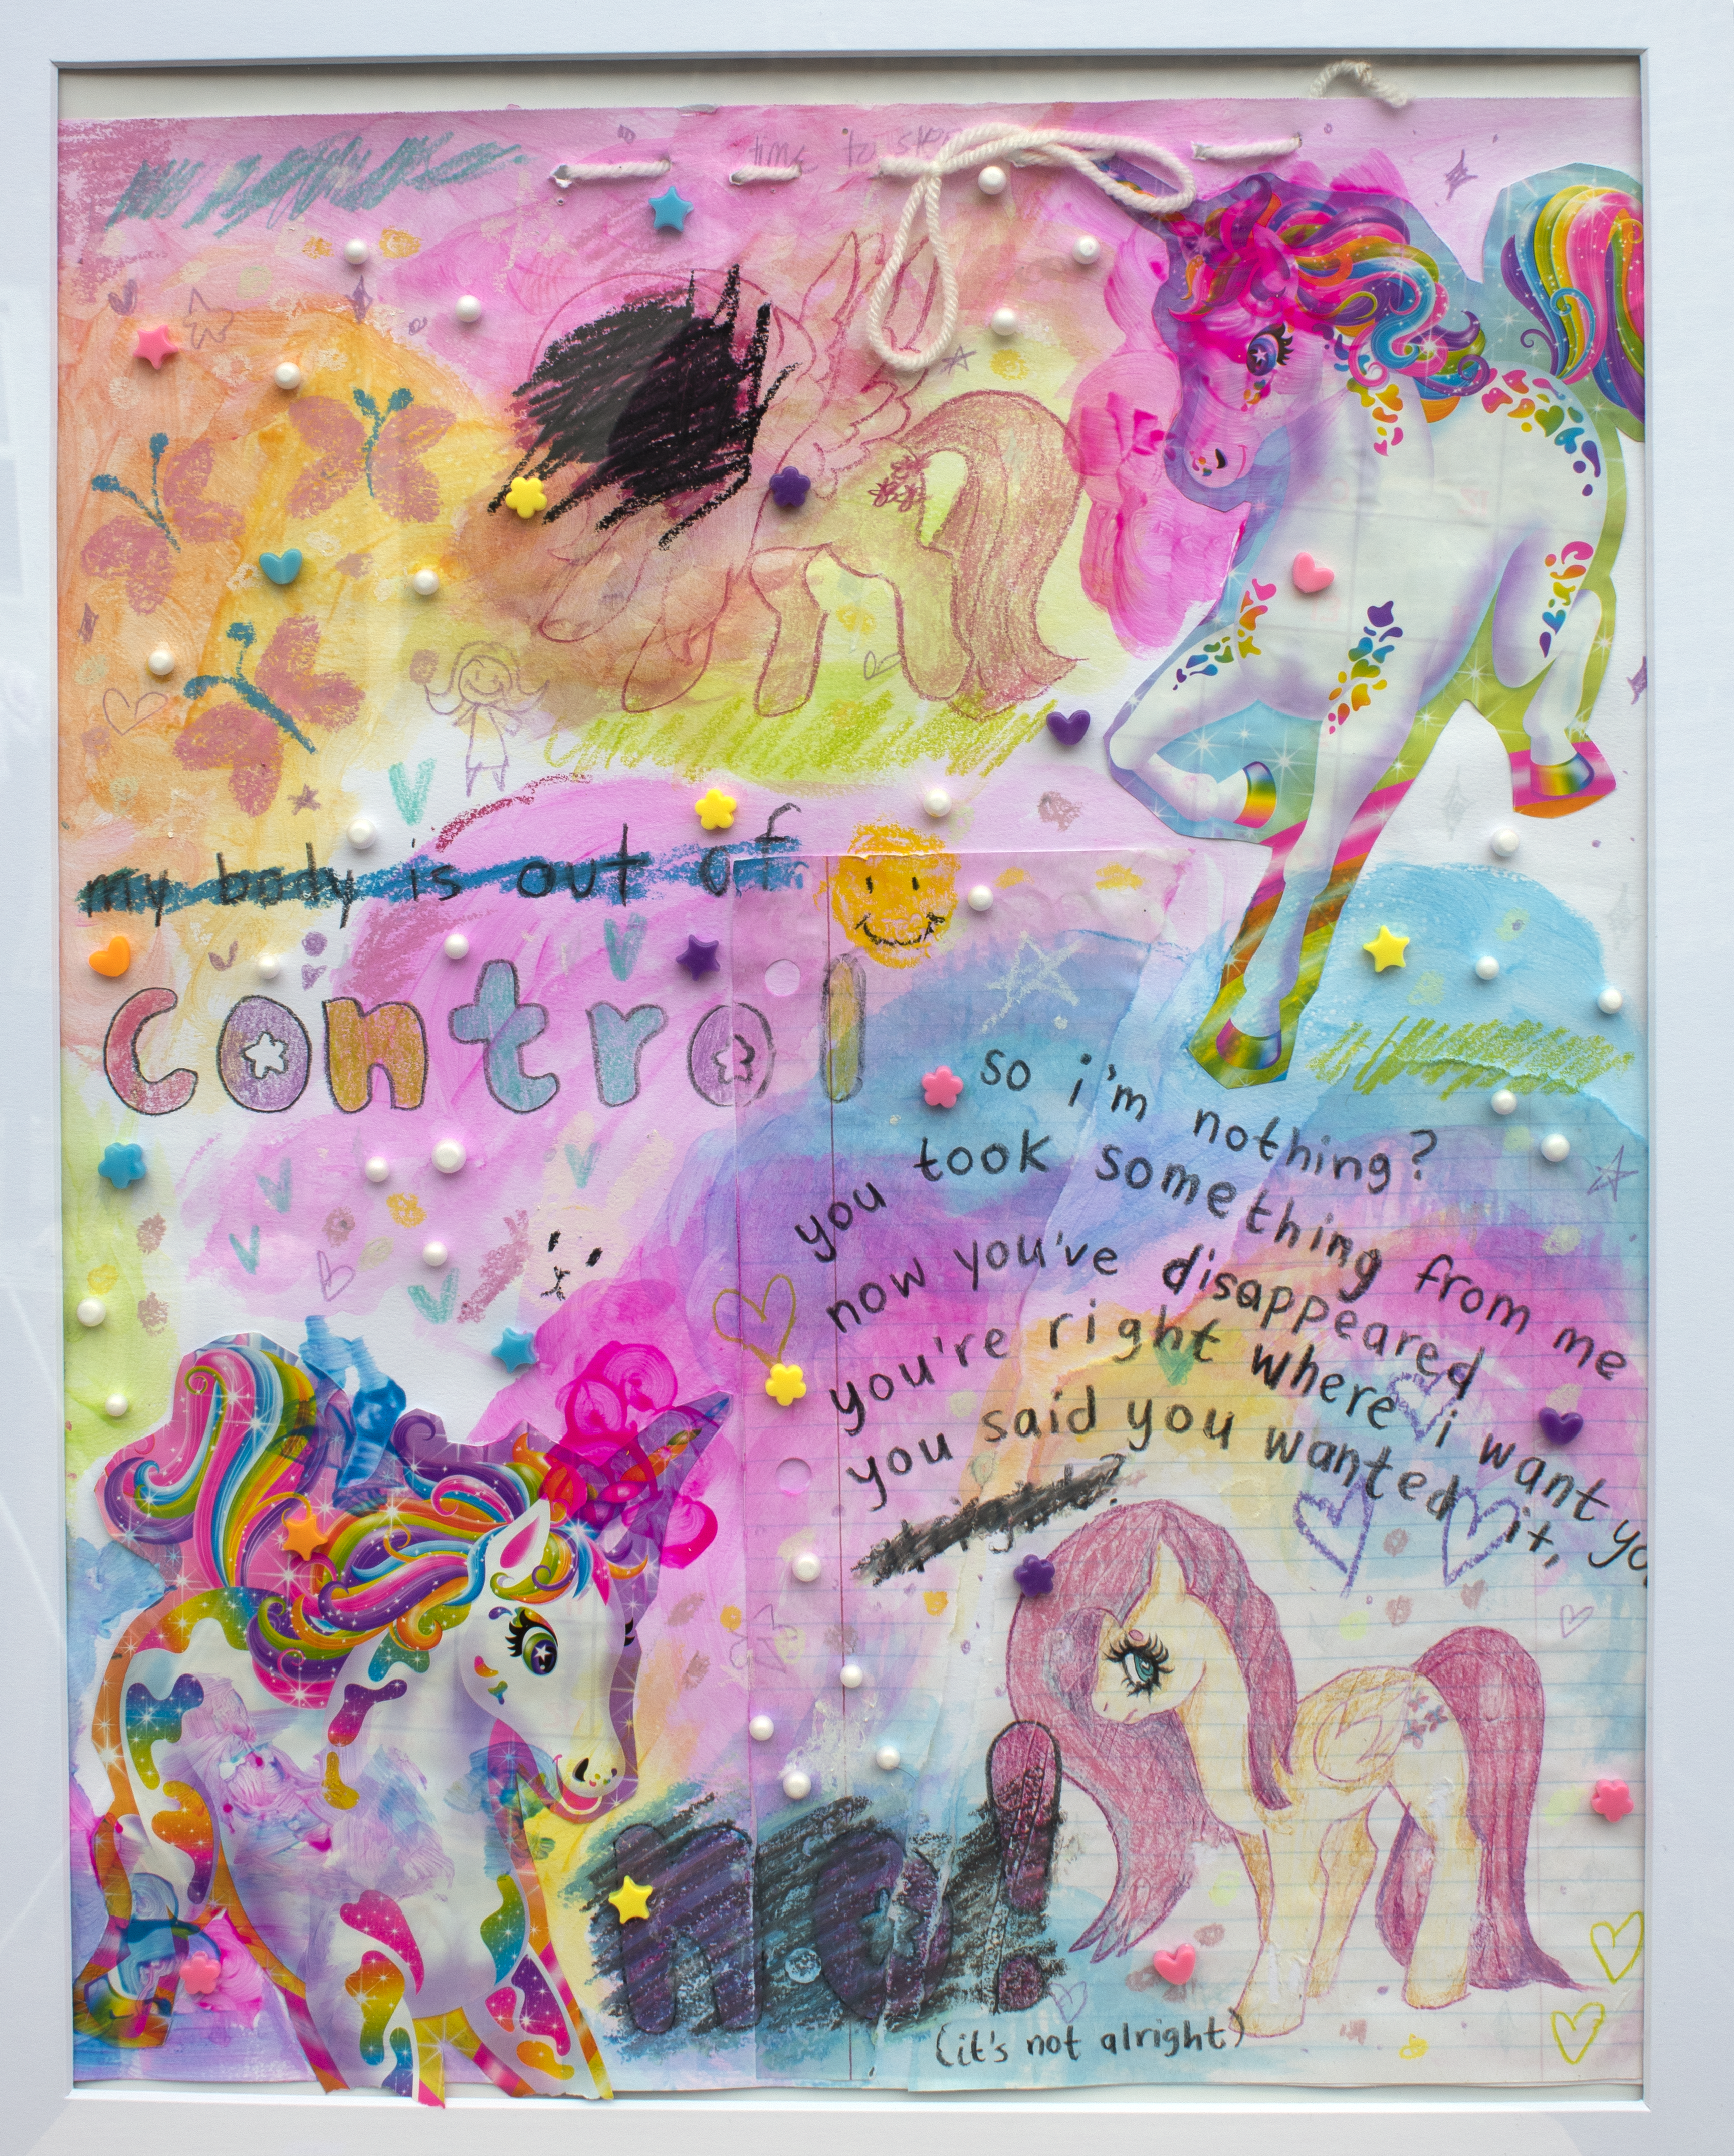 time to
my body is out of
control
so i'm nothing?
you took something from me
now you've disappeared
you're right where i want yo
you said you wanted it,
right?
no!
(it's not alright)